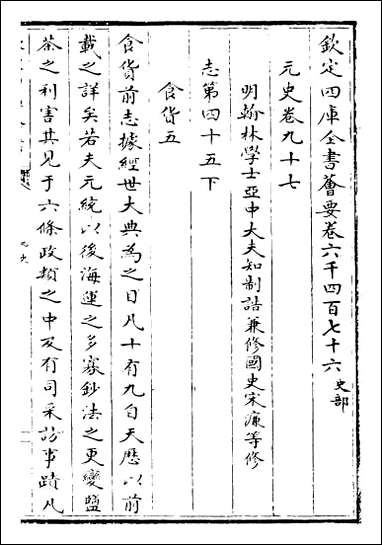 欽定四庫全書薈要卷六千四百七十六史部
元史卷九十七
明翰林學士亞中大夫知制誥兼修國史宋濂等修
志第四十五下
食貨五
食貨前志據經世大典為之目凡十有九自天歷以前
載之詳矣若夫元統以後海運之多寡鈔法之更變鹽
茶之利害其見于六條政類之中及有司采訪事蹟凡